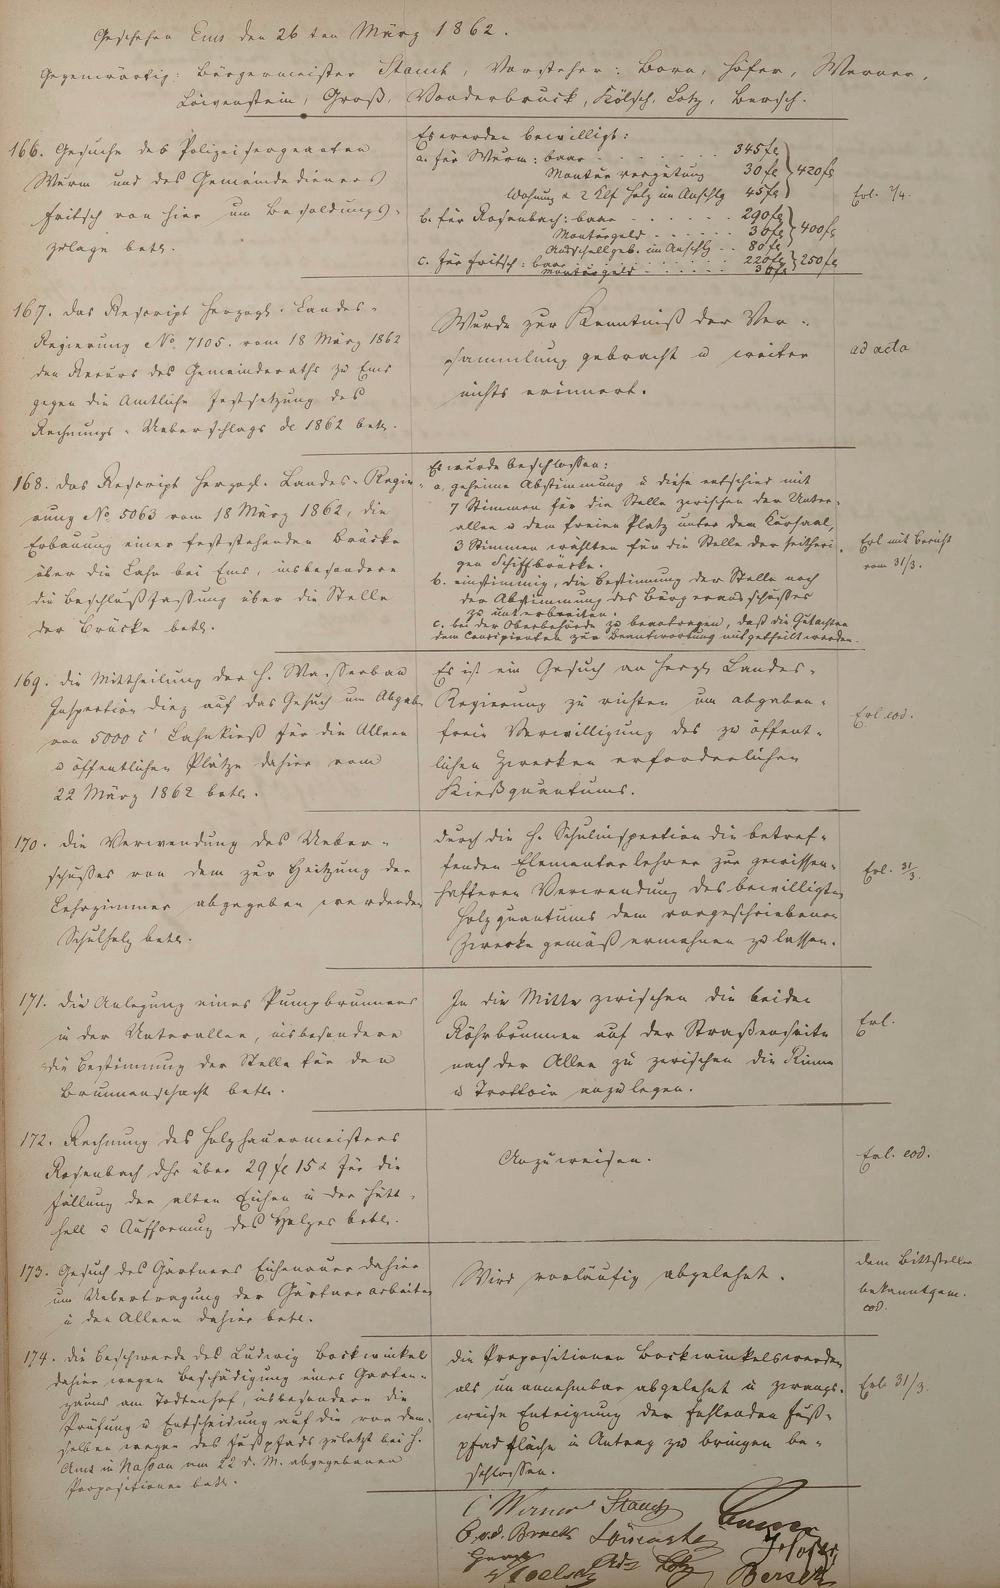 Geschehen Ems den 26ten März 1862.
Gegenwärtig: Bürgermeister Stauch, Vorsteher: Born, Höfer, Werner,
Löwenstein, Groß, Vonderbruck, Kölsch, Lotz, Bersch.
166. Gesuche des Polizeisergeanten
Wurm und des Gemeindedieners
Fritsch von hier um Besoldungs-
zulage betr.
Es werden bewilligt:
a. für Wurm: baar 345 fl
Montur vergütung 30 fl } 420 fl
Wohnung u 2 Klf Holz im Anschlg 45 fl
b. für Rosenbach: baar 290 fl
Monturgeld 30 fl } 400 fl
Ausschellgeb. im Anschlg 80 fl
c. für Fritsch: baar 220 fl } 250 fl
Monturgeld 30 fl
Erl. 7/4.
167. Das Rescript Herzogl. Landes-
Regierung No. 7105. vom 18 März 1862
den Recurs des Gemeinderaths zu Ems
gegen die Amtliche Festsetzung des
Rechnungs-Ueberschlags de 1862 betr.
Wurde zur Kenntniß der Ver-
sammlung gebracht u weiter
nichts erinnert.
ad acta
168. Das Rescript Herzogl. Landes-Regie-
rung No. 5063 vom 18 März 1862, die
Erbauung einer feststehenden Brücke
über die Lahn bei Ems, insbesondere
die Beschlußfassung über die Stelle
der Brücke betr.
Es wurde beschlossen:
a. geheime Abstimmung u diese entschied mit
7 Stimmen für die Stelle zwischen der Unter-
allee u dem freien Platz unter dem Kursaal,
3 Stimmen wählten für die Stelle der seitheri-
gen Schiffbrücke.
b. einstimmig, die Bestimmung der Stelle noch
der Abstimmung des Bürgerausschußes
zu unterbreiten.
c. bei der Oberbehörde zu beantragen, daß die Gutachten
dem Concipienten zur Beantwortung mitgetheilt werden.
Erl mit Bericht
vom 31/3.
169. Die Mittheilung der H. Wasserbau
Inspection Diez auf das Gesuch um Abgabe
von 5000 c' Lahnkies für die Alleen
u öffentlichen Plätze dahier vom
22 März 1862 betr.
Es ist ein Gesuch an Herzgl Landes-
Regierung zu richten um abgaben-
freie Verwilligung des zu öffent-
lichen Zwecken erforderlichen
Kiesquantums.
Erl. eod.
170. Die Verwendung des Ueber-
schußes von dem zur Heitzung der
Lehrzimmer abgegeben werdenden
Schulholz betr.
Durch die H. Schulinspection die betref-
fenden Elementarlehrer zur gewissen-
hafteren Verwendung des bewilligten
Holzquantums dem vorgeschriebenen
Zwecke gemäß ermahnen zu lassen.
Erl. 31/3.
171. Die Anlegung eines Pumpbrunnens
in der Unterallee, insbesondere
die Bestimmung der Stelle für den
Brunnenschacht betr.
In die Mitte zwischen die beiden
Röhrbrunnen auf der Straßenseite
nach der Allee zu zwischen die Rinne
u Trottoir anzulegen.
Erl.
172. Rechnung des Holzhauermeisters
Rosenbach dhr über 29 fl 15 x für die
Fällung der alten Eichen in der Hütt-
hell u Aufformung des Holzes betr.
Anzuweisen.
Erl. eod.
173. Gesuch des Gärtners Eichenauer dahier
um Uebertragung der Gärtnerarbeiten
in den Alleen dahier betr.
Wird vorläufig abgelehnt.
dem Bittsteller
bekanntgem.
eod.
174. Die Beschwerde des Ludwig Bockwinkel
dahier wegen Beschädigung eines Garten-
zauns am Todtenhof, insbesondere die
Prüfung u Entscheidung auf die von dem-
selben wegen des Fußpfads zuletzt bei H.
Amt in Nassau am 22 d. M. abgegebenen
Propositionen betr.
Die Propositionen Bockwinkels werden
als unannehmbar abgelehnt u zwangs-
weise Enteignung der fehlenden Fuß-
pfadfläche in Antrag zu bringen be-
schlossen.
Erl. 31/3.
C Werner Stauch
C. v. d. Bruck Löwenstein Höfer
Koelsch Lotz Bersch